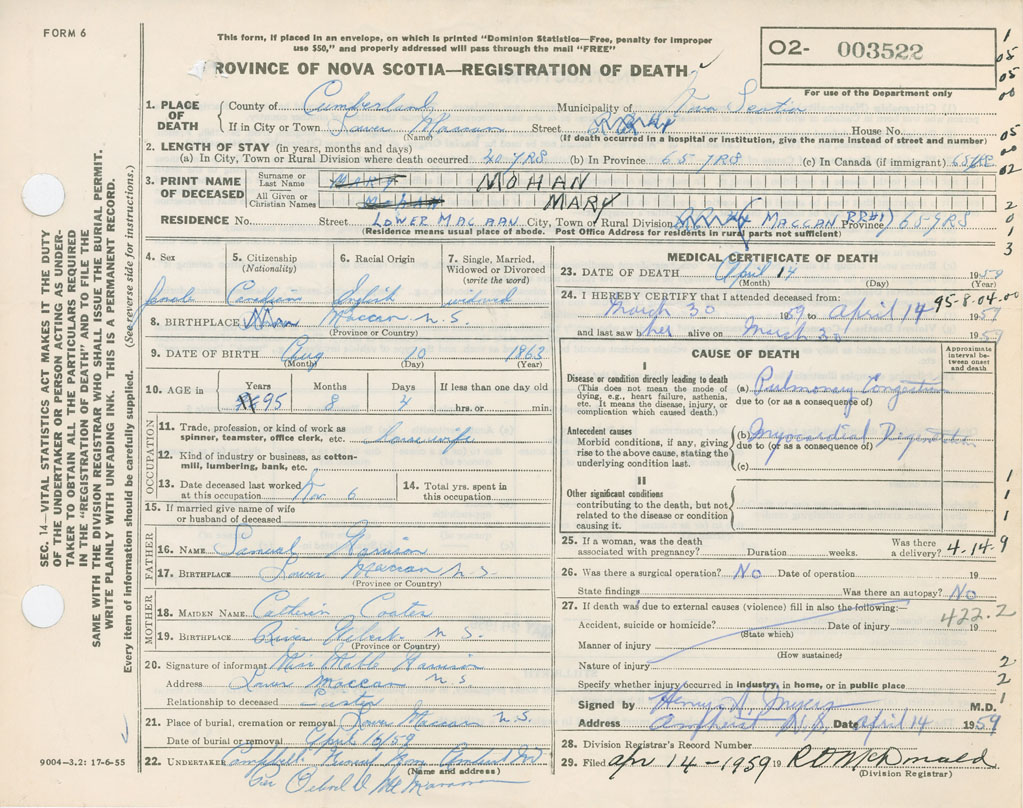 FORM 6
This form, if placed in an envelope, on which is printed "Dominion Statistics—Free, penalty for improper
use $50," and properly addressed will pass through the mail "FREE"
ROVINCE OF NOVA SCOTIA—REGISTRATION OF DEATH
O2- 003522
For use of the Department only
1. PLACE OF DEATH County of Cumberland Municipality of Nova Scotia
If in City or Town Lower Maccan Street House No.
(Name) (If death occurred in a hospital or institution, give the name instead of street and number)
2. LENGTH OF STAY (in years, months and days)
(a) In City, Town or Rural Division where death occurred 40 YRS (b) In Province 65 YRS (c) In Canada (if immigrant) 65 YRS
3. PRINT NAME OF DECEASED Surname or Last Name MOHAN
All Given or Christian Names MARY
RESIDENCE No. Street LOWER MACCAN City, Town or Rural Division MACCAN RR#1 Province 65 YRS
(Residence means usual place of abode. Post Office Address for residents in rural parts not sufficient)
4. Sex 5. Citizenship (Nationality) 6. Racial Origin 7. Single, Married, Widowed or Divorced (write the word)
female Canadian English widowed
8. BIRTHPLACE Maccan N.S.
(Province or Country)
9. DATE OF BIRTH Aug 10 1863
(Month) (Day) (Year)
10. AGE in Years Months Days If less than one day old
95 8 4 hrs. or min.
OCCUPATION
11. Trade, profession, or kind of work as spinner, teamster, office clerk, etc. housewife
12. Kind of industry or business, as cotton-mill, lumbering, bank, etc.
13. Date deceased last worked at this occupation Nov. 6 14. Total yrs. spent in this occupation
15. If married give name of wife or husband of deceased
FATHER
16. NAME Samuel Harrison
17. BIRTHPLACE Lower Maccan N.S.
(Province or Country)
MOTHER
18. MAIDEN NAME Catherin Coates
19. BIRTHPLACE River Hebert N S.
(Province or Country)
20. Signature of informant Miss Mable Harrison
Address Lower Maccan N.S.
Relationship to deceased Sister
21. Place of burial, cremation or removal Lower Maccan N.S.
Date of burial or removal April 16/59
22. UNDERTAKER Campbells Funeral Home Amherst NS
(Name and address)
Per
MEDICAL CERTIFICATE OF DEATH
23. DATE OF DEATH April 14 1959
(Month) (Day) (Year)
24. I HEREBY CERTIFY that I attended deceased from:
March 30 1959 to April 14 1959
95-8-04.00
and last saw her alive on March 30 1959
CAUSE OF DEATH
Approximate interval between onset and death
I
Disease or condition directly leading to death
(This does not mean the mode of dying, e.g., heart failure, asthenia, etc. It means the disease, injury, or complication which caused death.)
(a) Pulmonary Congestion
due to (or as a consequence of)
Antecedent causes
Morbid conditions, if any, giving rise to the above cause, stating the underlying condition last.
(b) Myocardial Degeneration
due to (or as a consequence of)
(c)
II
Other significant conditions
contributing to the death, but not related to the disease or condition causing it.
25. If a woman, was the death associated with pregnancy? Duration weeks. Was there a delivery? 4-14-9
26. Was there a surgical operation? No Date of operation 19
State findings Was there an autopsy? No
27. If death was due to external causes (violence) fill in also the following:—
422.2
Accident, suicide or homicide? Date of injury 19
(State which)
Manner of injury
(How sustained)
Nature of injury
Specify whether injury occurred in industry, in home, or in public place
Signed by Henry A. Myers M.D.
Address Amherst N.S. Date April 14 1959
28. Division Registrar's Record Number
29. Filed Apr 14-1959 19 R D McDonald
(Division Registrar)
SEC. 14—VITAL STATISTICS ACT MAKES IT THE DUTY
OF THE UNDERTAKER OR PERSON ACTING AS UNDER-
TAKER TO OBTAIN ALL THE PARTICULARS REQUIRED
IN THE "REGISTRATION OF DEATH" AND TO FILE THE
SAME WITH THE DIVISION REGISTRAR WHO SHALL ISSUE THE BURIAL PERMIT.
WRITE PLAINLY WITH UNFADING INK. THIS IS A PERMANENT RECORD.
Every item of information should be carefully supplied. (See reverse side for instructions.)
9004-3.2: 17-6-55
1
05
05
00
05
00
02
2
0
1
3
1
1
1
2
2
1